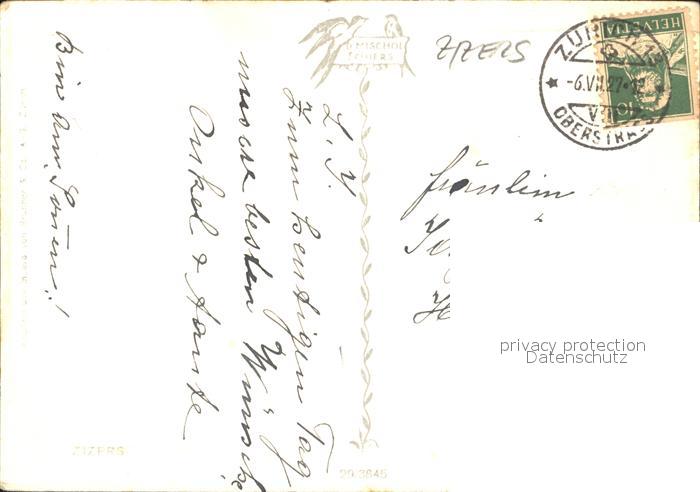 D. MISCHOL
SCHIERS
ZIZERS
HELVETIA
10
ZÜRICH
-6.VII.27-12
OBERSTRASS
L. Y.
Zum heutigen Tag
unsere besten Wünsche
Onkel & Tante
Bin am
Fräulein
privacy protection
Datenschutz
ZIZERS
29.3645